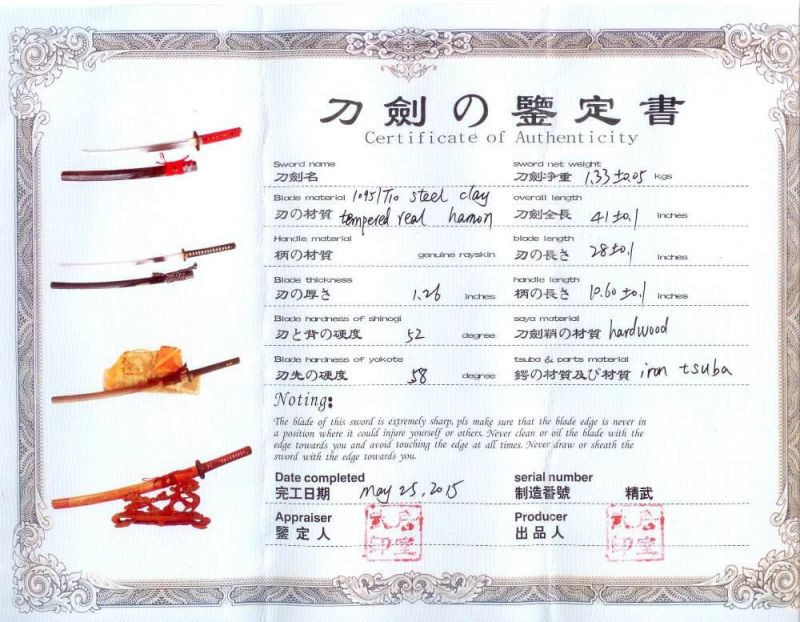 刀劍の鑒定書
Certificate of Authenticity
Sword name
刀劍名
sword net weight
刀劍净重 1.33 ±0.05 kgs
Blade material 1095/T10 steel clay
刃の材質 tempered real hamon
overall length
刀劍全長 41 ±0.1 inches
Handle material
柄の材質 genuine rayskin
blade length
刃の長さ 28±0.1 inches
Blade thickness
刃の厚さ 1.26 inches
handle length
柄の長さ 10.60 ±0.1 inches
Blade hardness of shinogi
刃と背の硬度 52 degree
saya material
刀劍鞘の材質 hardwood
Blade hardness of yokote
刃先の硬度 58 degree
tsuba & parts material
鍔の材質及び材質 iron tsuba
Noting:
The blade of this sword is extremely sharp, pls make sure that the blade edge is never in
a position where it could injure yourself or others. Never clean or oil the blade with the
edge towards you and avoid touching the edge at all times. Never draw or sheath the
sword with the edge towards you.
Date completed
完工日期 may 25, 2015
serial number
制造番號 精武
Appraiser
鑒定人
Producer
出品人